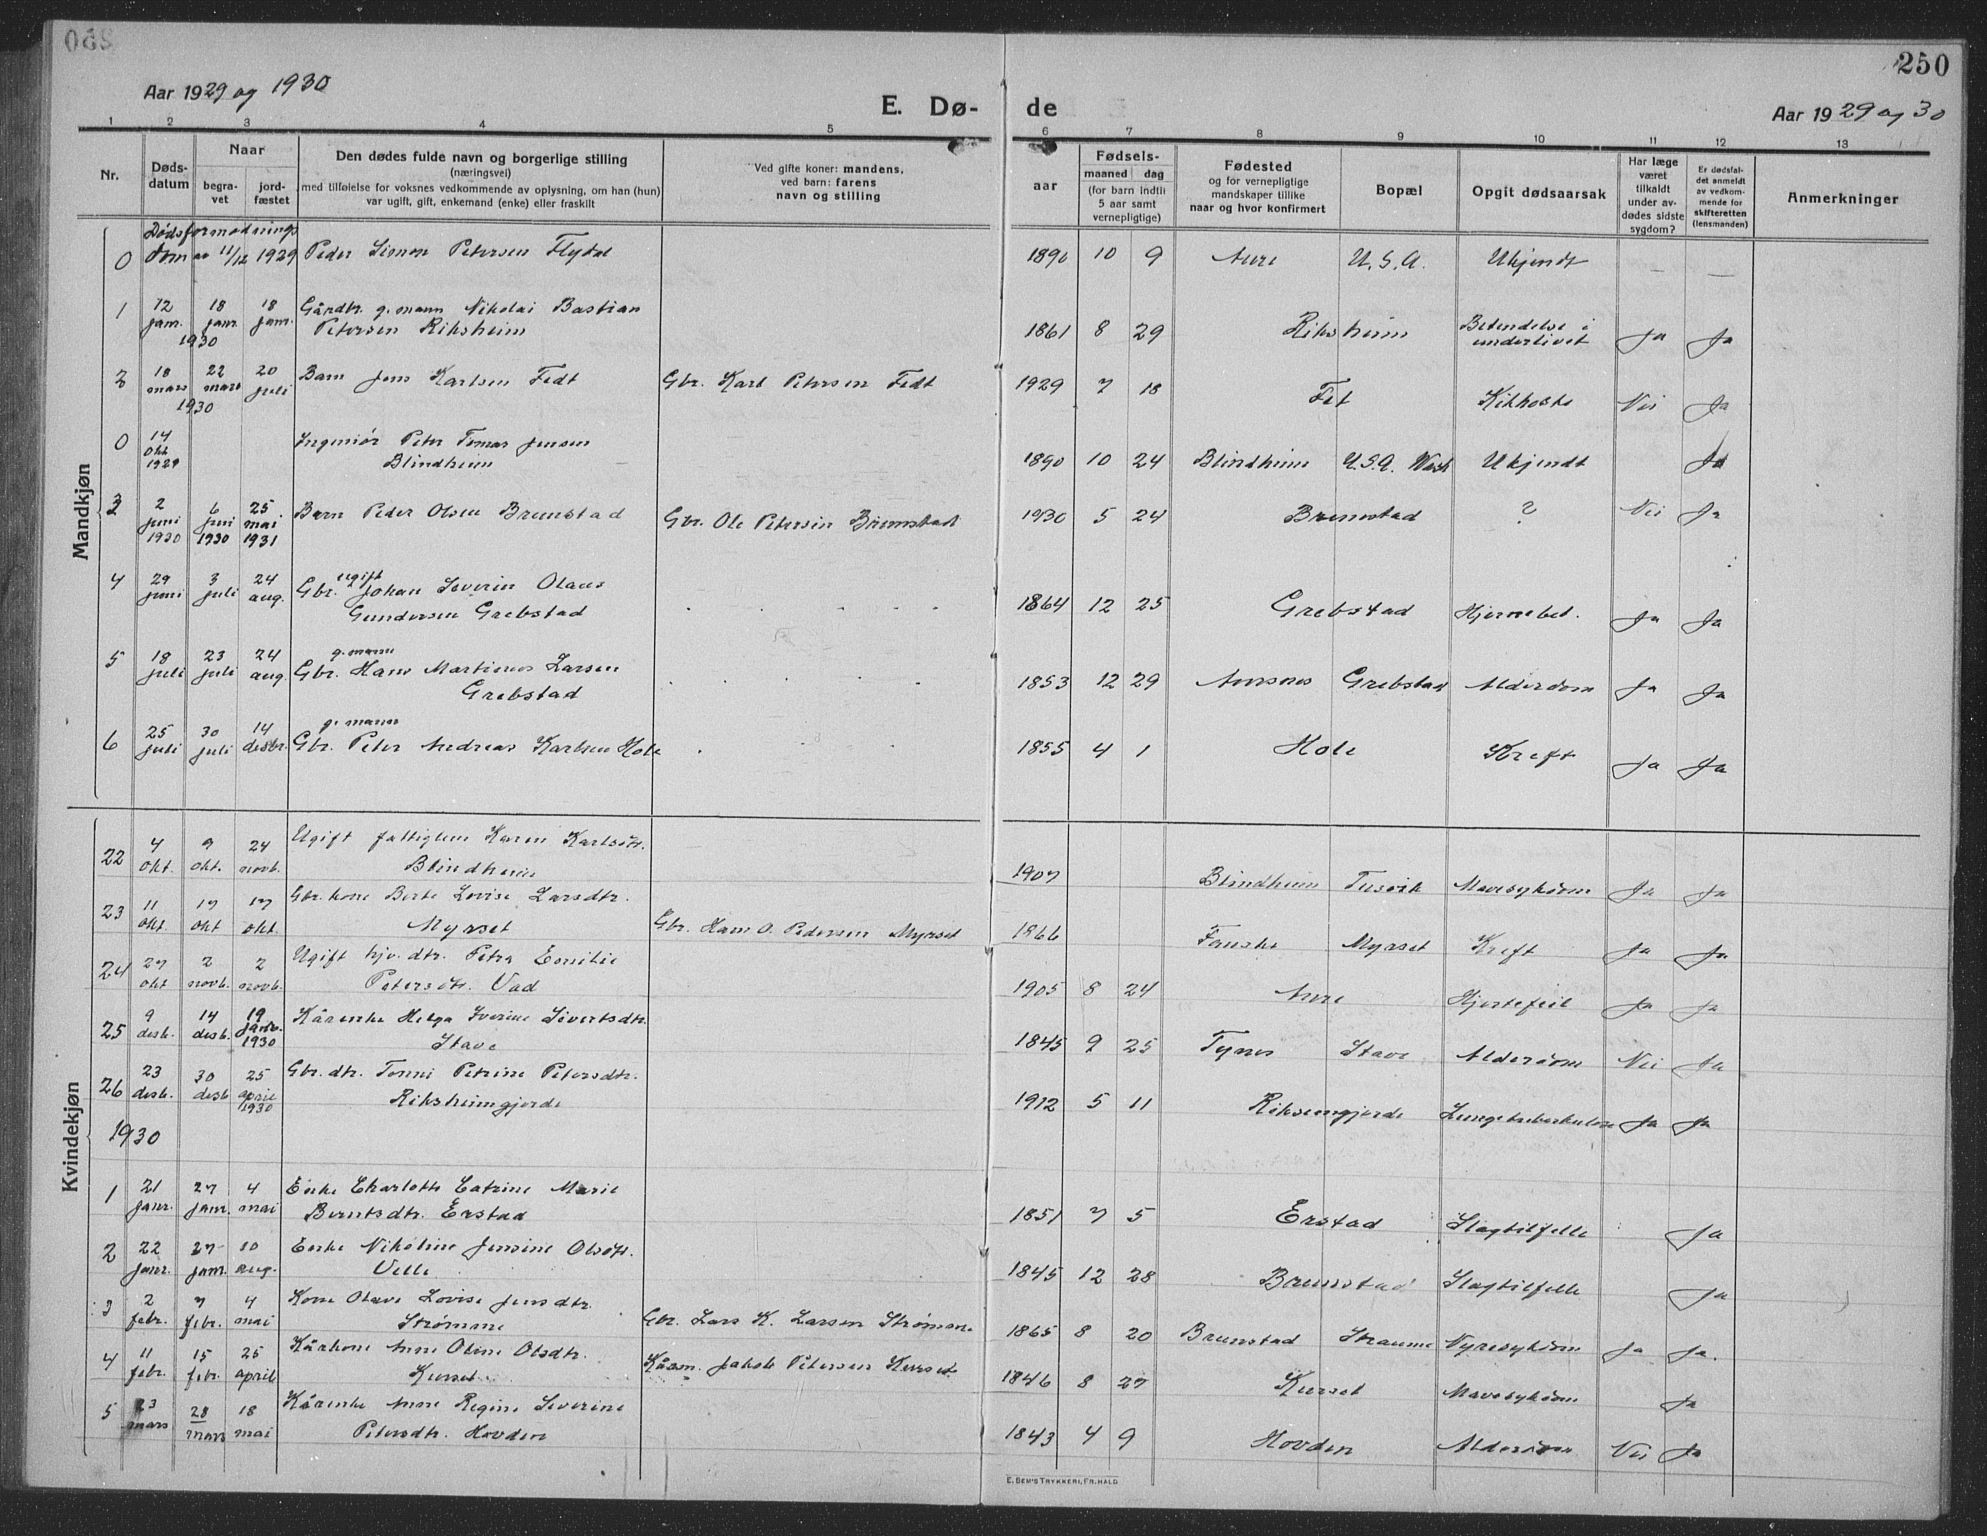 250
Aar 1929 og 1930
E. Dø- de
Aar 1929 og 30
1 2 3 4 5 6 7 8 9 10 11 12 13
Nr.
Døds-
datum
Naar
begra-
vet
jord-
fæstet
Den dødes fulde navn og borgerlige stilling
(næringsvei)
med tilføielse for voksnes vedkommende av oplysning, om han (hun)
var ugift, gift, enkemand (enke) eller fraskilt
Ved gifte koner: mandens,
ved barn: farens
navn og stilling
Fødsels-
aar
maaned dag
(for barn indtil
5 aar samt
vernepligtige)
Fødested
og for vernepligtige
mandskaper tillike
naar og hvor konfirmert
Bopæl
Opgit dødsaarsak
Har læge
været
tilkaldt
under av-
dødes sidste
sygdom?
Er dødsfal-
det anmeldt
av vedkom-
mende for
skifteretten
(lensmanden)
Anmerkninger
Mandkjøn
Dødsformodnings
0 dom av 11/12 1929 Peder Simon Petersen Flydal 1890 10 9 Aure U.S.A. Ukjendt — —
1 12 janr. 18 janr. 18 janr. Gårdbr. g. mann Nikolai Bastian
1930 Petersen Riksheim 1861 8 29 Riksheim Betendelse i underlivet Ja Ja
2 18 mars 22 mars 20 juli Barn Jens Karlsen Fedt Gbr. Karl Petersen Fedt 1929 7 18 Fet Kikhoste Nei Ja
1930
0 14 okt 1929 Ingeniør Peter Tomas Jensen
Blindheim 1890 10 24 Blindheim U.S.A. Wash Ukjendt Ja
3 2 juni 1930 6 juni 1930 25 mai 1931 Barn Peder Olsen Brunstad Gbr. Ole Petersen Brunstad 1930 5 24 Brunstad ? Nei Ja
4 29 juni 3 juli 24 aug. Gbr. ugift Johan Severin Olaus
Gundersen Grebstad 1864 12 25 Grebstad Hjernebet. Ja Ja
5 18 juli 23 juli 24 aug. g. mann Gbr. Hans Martinus Larsen
Grebstad 1853 12 29 Aursnes Grebstad Alderdom Ja Ja
6 25 juli 30 juli 14 desbr. g. mann Gbr. Peter Andreas Karlsen Hole 1855 4 1 Hole Kreft Ja Ja
Kvindekjøn
22 4 okt. 9 okt. 24 novb. Ugift fattiglem Karen Karlsdtr.
Blindheim 1907 Blindheim Tusvik Mavesykdom Ja Ja
23 11 okt. 17 okt 17 okt. Gbr. kone Berte Lovise Larsdtr.
Myrset Gbr. Hans O. Pedersen Myrset 1866 Fauske Myrset Kreft Ja Ja
24 27 okt 2 novb. 2 novb. Ugift hjv. dtr. Petra Emilie
Petersdtr. Vad 1905 8 24 Aure Hjertefeil Ja Ja
25 9 desb. 14 desb. 19 janr. 1930 Kårenke Helga Iverine Sivertsdtr.
Stave 1845 9 25 Tynes Stave Alderdom Nei Ja
26 23 desb. 30 desb 25 april 1930 Gbr. dtr. Tomni Petrine Petersdtr.
Riksheimgjerde 1912 5 11 Riksemgjerde Lungetuberkulose Ja Ja
1930
1 21 janr. 27 janr. 4 mai Enke Charlotte Catrine Marie
Berntsdtr. Erstad 1851 7 5 Erstad Slagtilfelle Ja
2 22 janr. 27 janr. 10 aug. Enke Nikoline Jensine Olsdtr.
Velle 1845 12 28 Brunstad Slagtilfelle Ja
3 2 febr. 7 febr. 4 mai Kone Olave Lovise Jensdtr.
Strømme Gbr. Lars K. Larsen Strømme 1865 8 20 Brunstad Straume Nyresykdom Ja Ja.
4 11 febr. 15 febr. 25 april Kårkone Anne Oline Olsdtr.
Kurset Kårm. Jakob Petersen Kurset 1846 8 27 Kurset Mavesykdom Ja
5 23 mars 28 mars 18 mai Kårenke Anne Regine Severine
Petersdtr. Hovden 1843 4 9 Hovden Alderdom Nei Ja
E. SEM'S TRYKKERI, FR.HALD